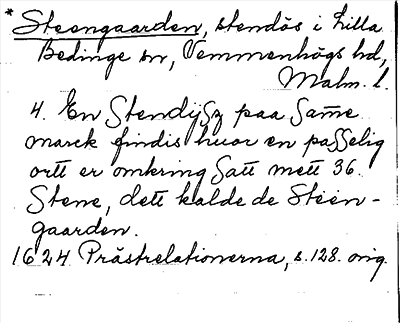 * Steengaarden, stendös i Lilla
Bedinge sn, Vemmenhögs hd,
Malm. l.
4. En Stendijsz paa Sam̅e
marck findis huor en paszelig
ortt er omkring Satt mett 36.
Stene, dett kalde de Steen-
gaarden.
1624 Prästrelationerna, s. 128. orig.